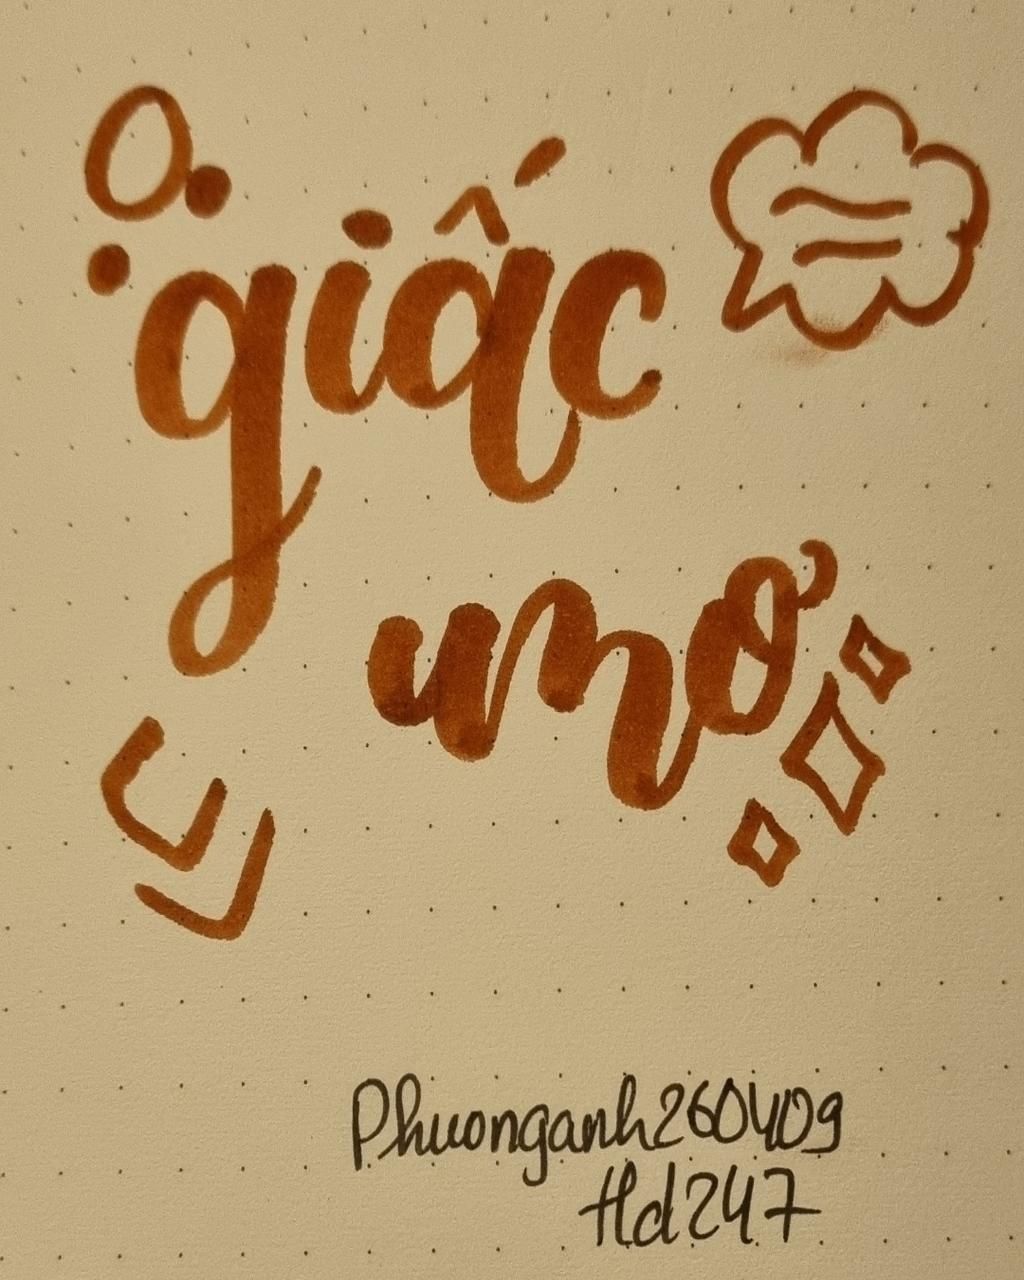 giấc
mơ
Phuonganh260409
Hd247